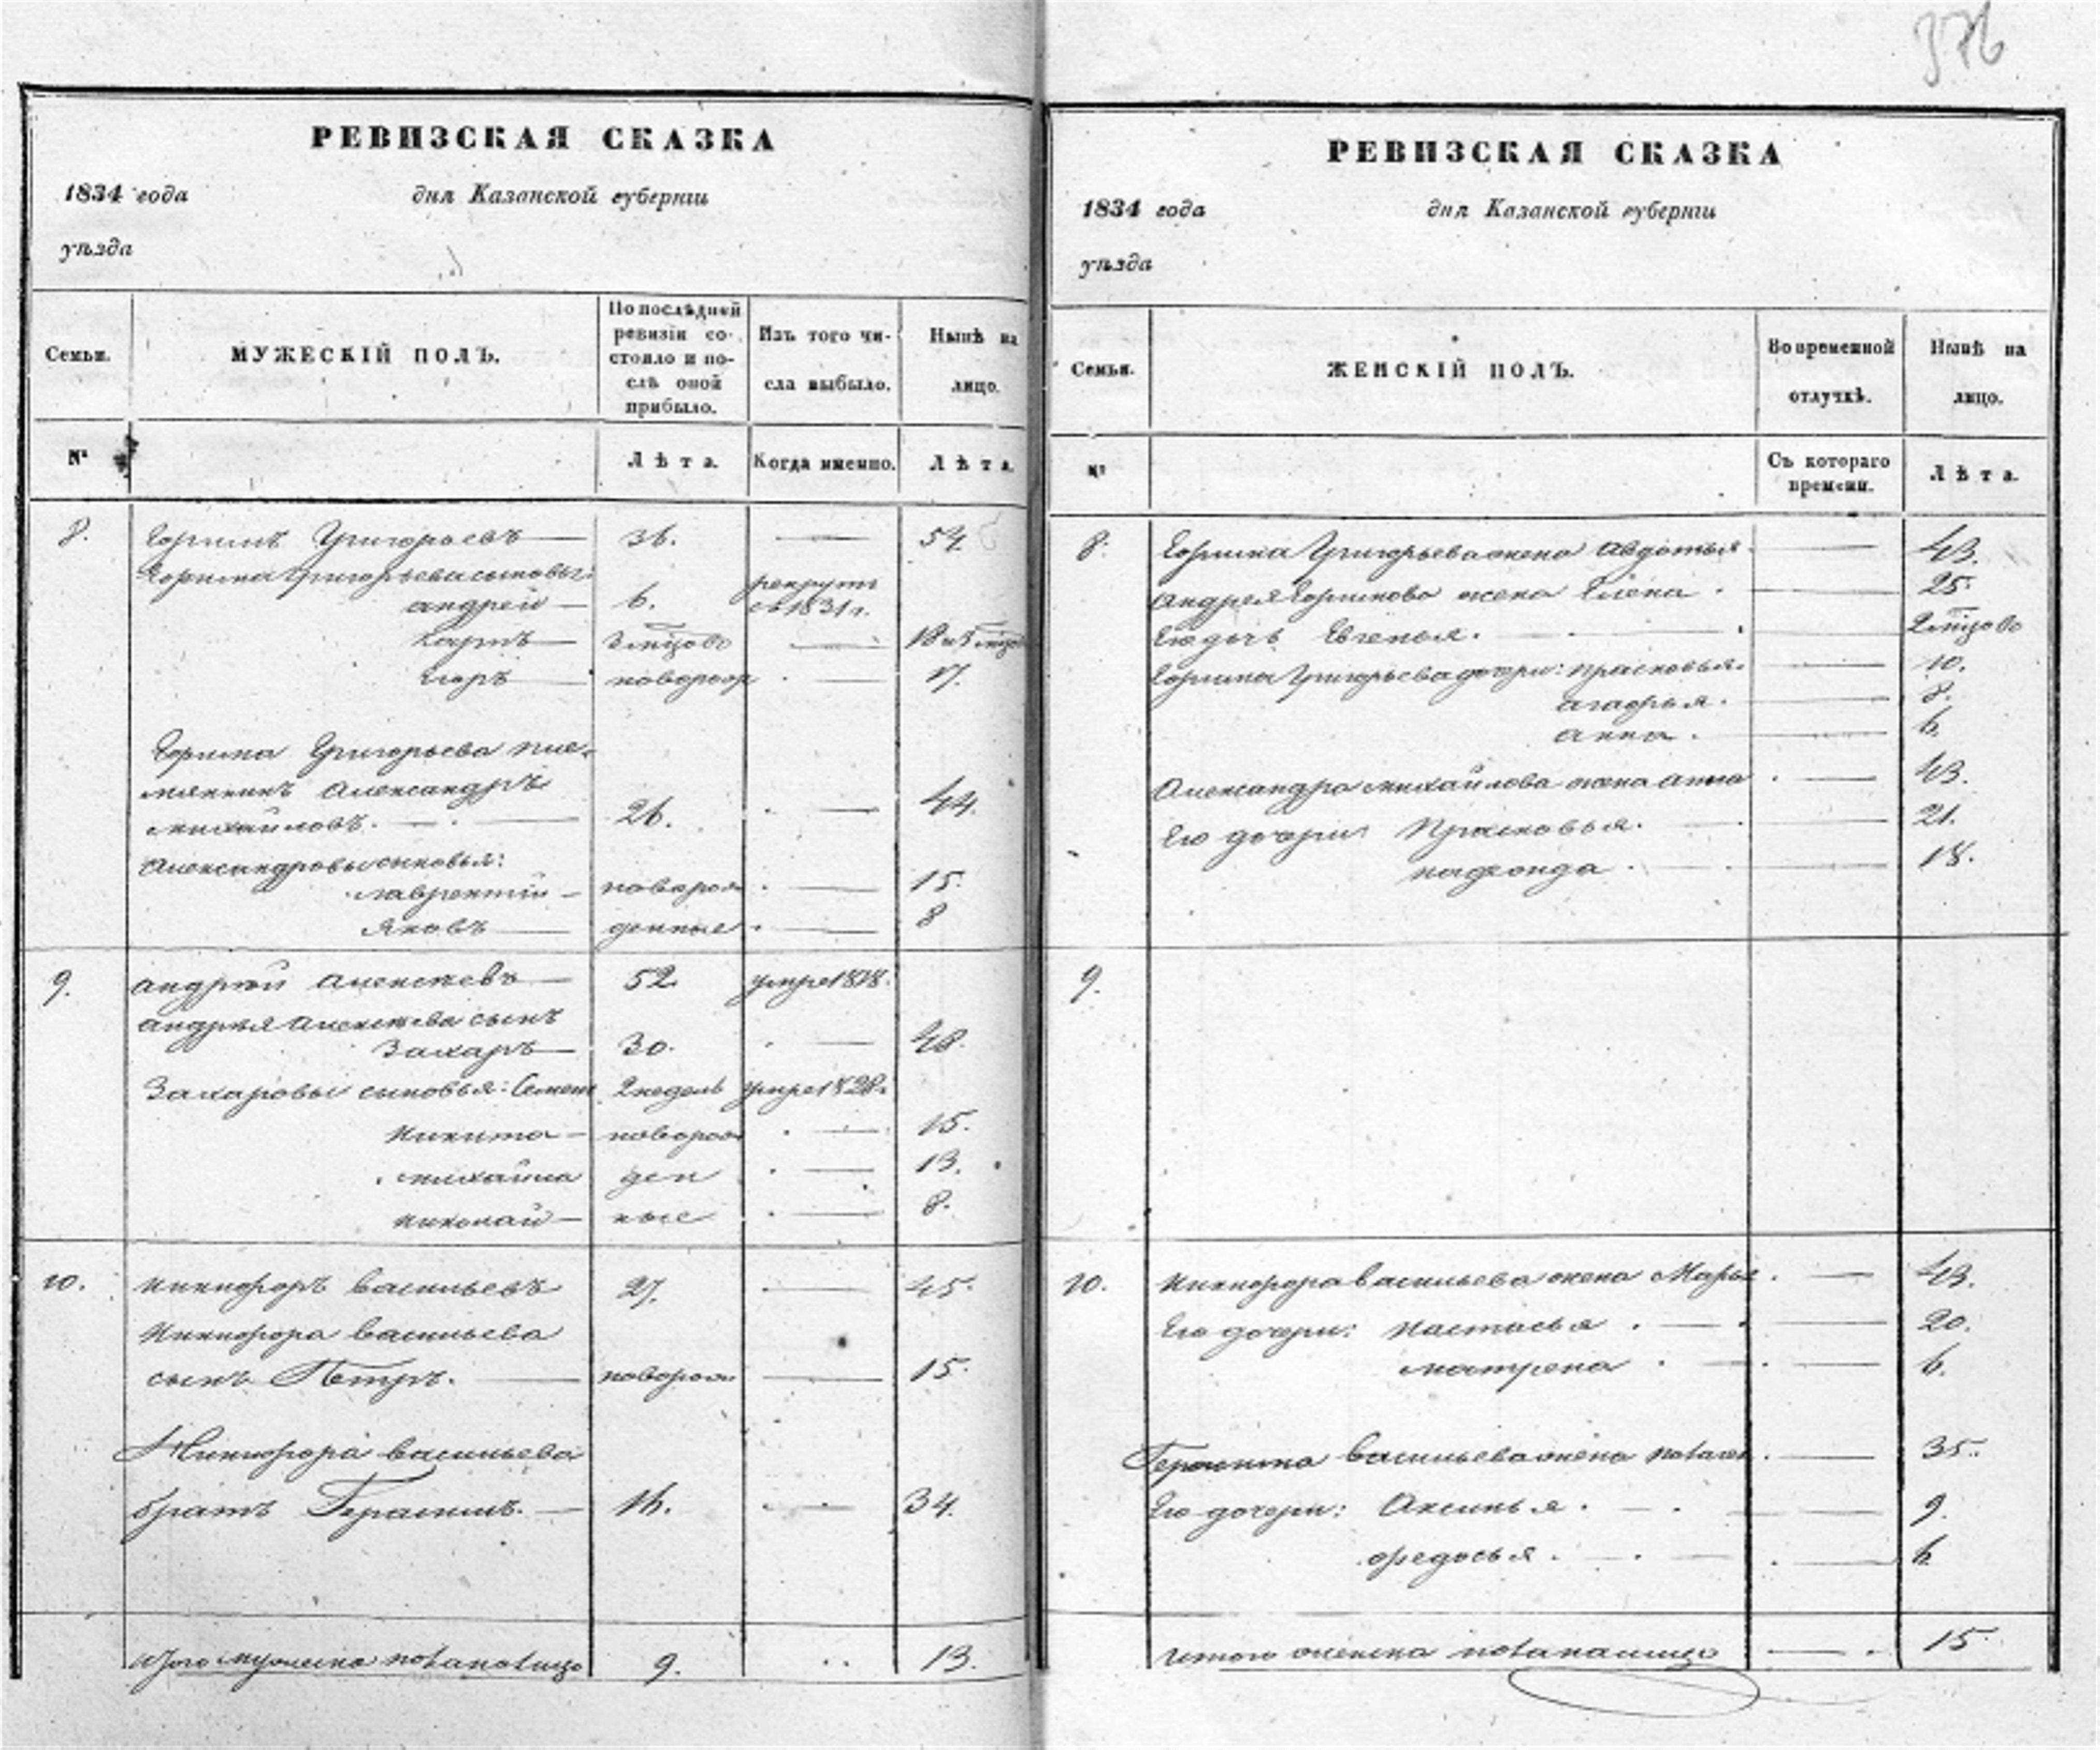 376
РЕВИЗСКАЯ СКАЗКА
1834 года дня Казанской губернiи
уѣзда
Семьи. МУЖЕСКIЙ ПОЛЪ. По послѣдней ревизiи состояло и послѣ оной прибыло. Изъ того числа выбыло. Нынѣ на лицо.
№ Лѣта. Когда именно. Лѣта.
8. Григорьевъ — 36. — 54
Григорьева сыновья:
андрей — 6. рекрутъ съ 1831 г.
Карпъ — 3 мѣсяцовъ — 18
Егоръ — новорож — 17.
Григорьева пле-
мянникъ Александръ
михайловъ. — 26. — 44.
Александровы сыновья:
лаврентiй — новорож — 15.
Яковъ — денные — 8
9. андрей алексѣевъ — 52. умре 1818.
андрея алексѣева сынъ
Захаръ — 30. — 48.
Захаровы сыновья: Семенъ 2 недель умре 1828.
никита — новорож — 15.
михайла ден — 13.
николай — ные — 8.
10. никифоръ васильевъ 27. — 45.
Никифора васильева
сынъ Петръ. — новорож — 15.
Никифора васильева
братъ Герасимъ. — 16. — 34.
Итого мужеска пола на лицо 9. 13.
РЕВИЗСКАЯ СКАЗКА
1834 года дня Казанской губернiи
уѣзда
Семьи. ЖЕНСКIЙ ПОЛЪ. Во временной отлучкѣ. Нынѣ на лицо.
№ Съ котораго времени. Лѣта.
8. Григорьева жена авдотья — 43.
андрея жена Елена — 25.
Его дочь Евгенья. — 2 мѣсяцовъ
Григорьева дочери: прасковья. — 10.
агафья. — 8.
анна. — 6.
Александра михайлова жена анна — 43.
Его дочери: Прасковья. — 21.
— 18.
9.
10. никифора васильева жена Марья. — 43.
Его дочери: настасья. — 20.
матрена — 6.
Герасима васильева жена — 35.
Его дочери: Аксинья. — 9.
федосья. — 6.
Итого женска пола на лицо — 15.